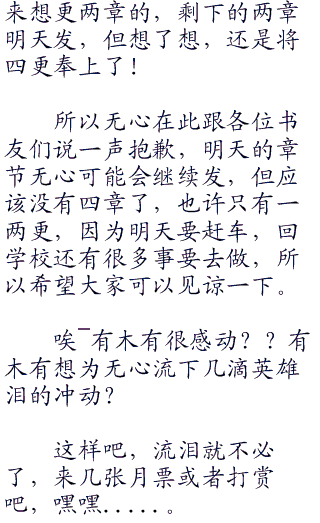 来想更两章的，剩下的两章
明天发，但想了想，还是将
四更奉上了！
所以无心在此跟各位书
友们说一声抱歉，明天的章
节无心可能会继续发，但应
该没有四章了，也许只有一
两更，因为明天要赶车，回
学校还有很多事要去做，所
以希望大家可以见谅一下。
唉¯有木有很感动？？有
木有想为无心流下几滴英雄
泪的冲动？
这样吧，流泪就不必
了，来几张月票或者打赏
吧，嘿嘿.....。